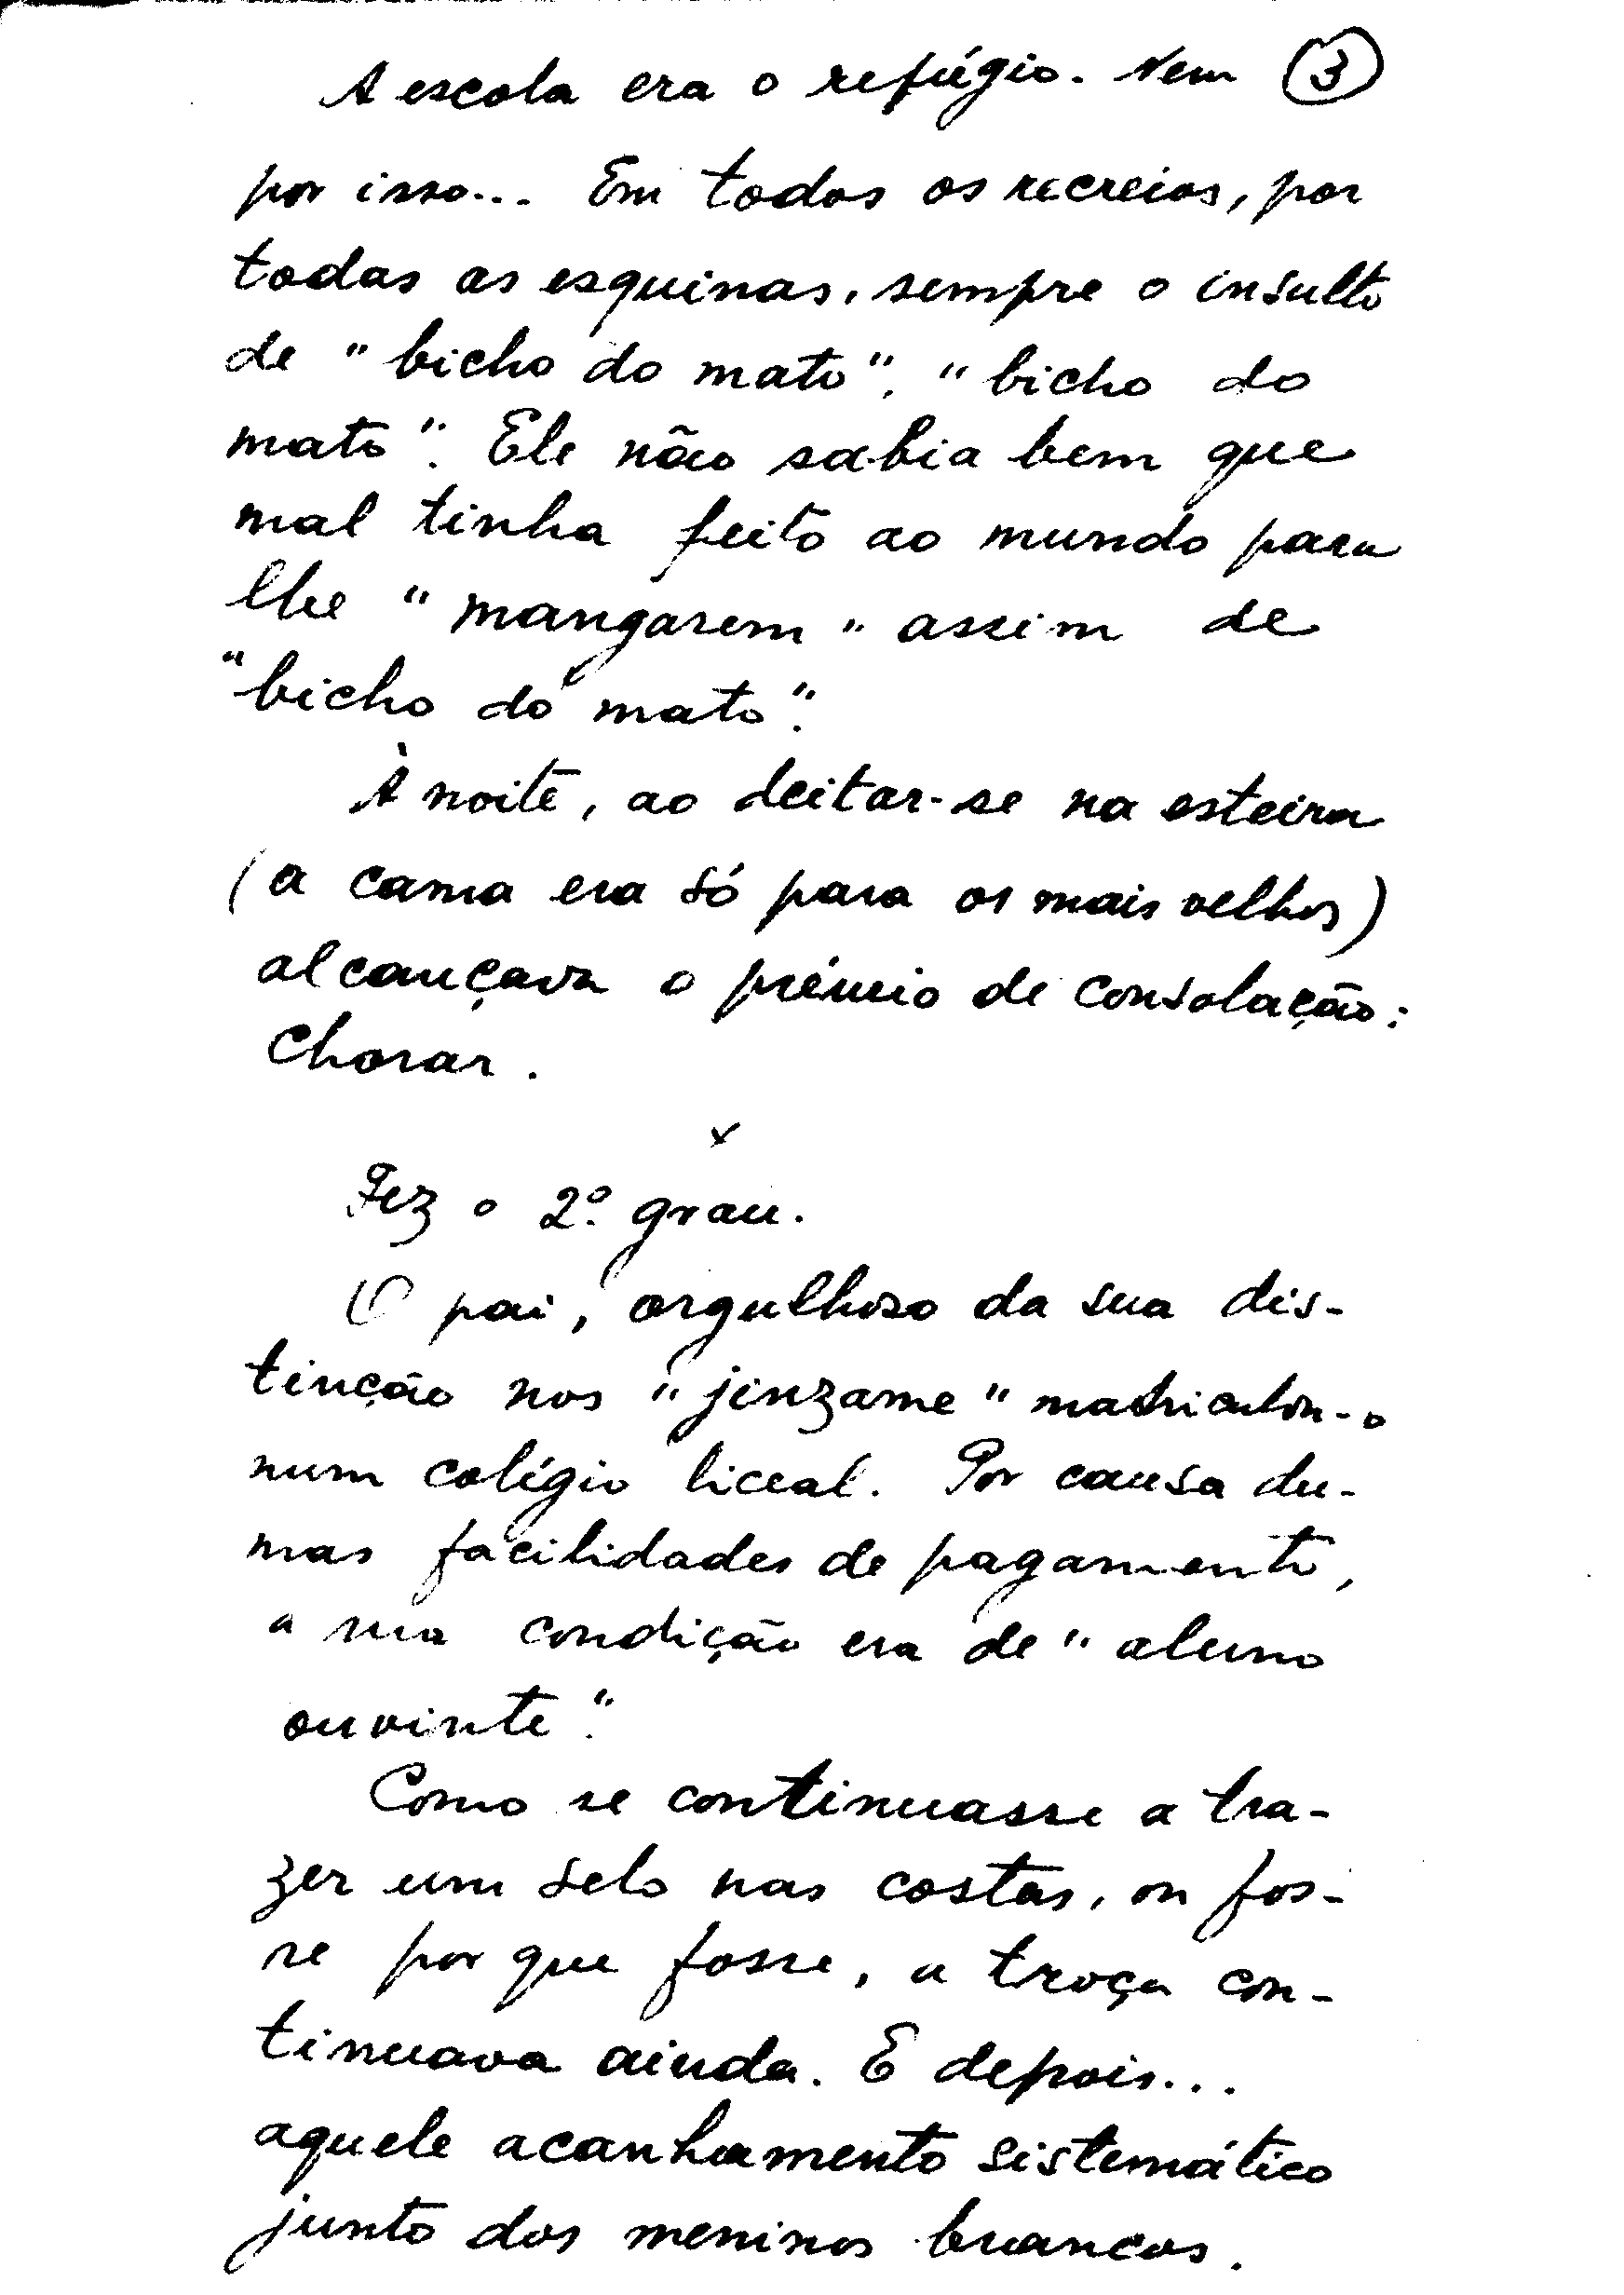 A escola era o refúgio. Nem ③
por isso... Em todos os recreios, por
todas as esquinas, sempre o insulto
de "bicho do mato", "bicho do
mato". Ele não sabia bem que
mal tinha feito ao mundo para
lhe "mangarem" assim de
"bicho do mato".
À noite, ao deitar-se na esteira
(a cama era só para os mais velhos)
alcançava o prémio de consolação:
Chorar.
x
Fez o 2º. grau.
O pai, orgulhoso da sua dis-
tinção nos "jinzame" matriculou-o
num colégio liceal. Por causa du-
mas facilidades de pagamento,
a sua condição era de "aluno
ouvinte".
Como se continuasse a tra-
zer um selo nas costas, ou fos-
se por que fosse, a troça con-
tinuava ainda. E depois...
aquele acanhamento sistemático
junto dos meninos brancos.